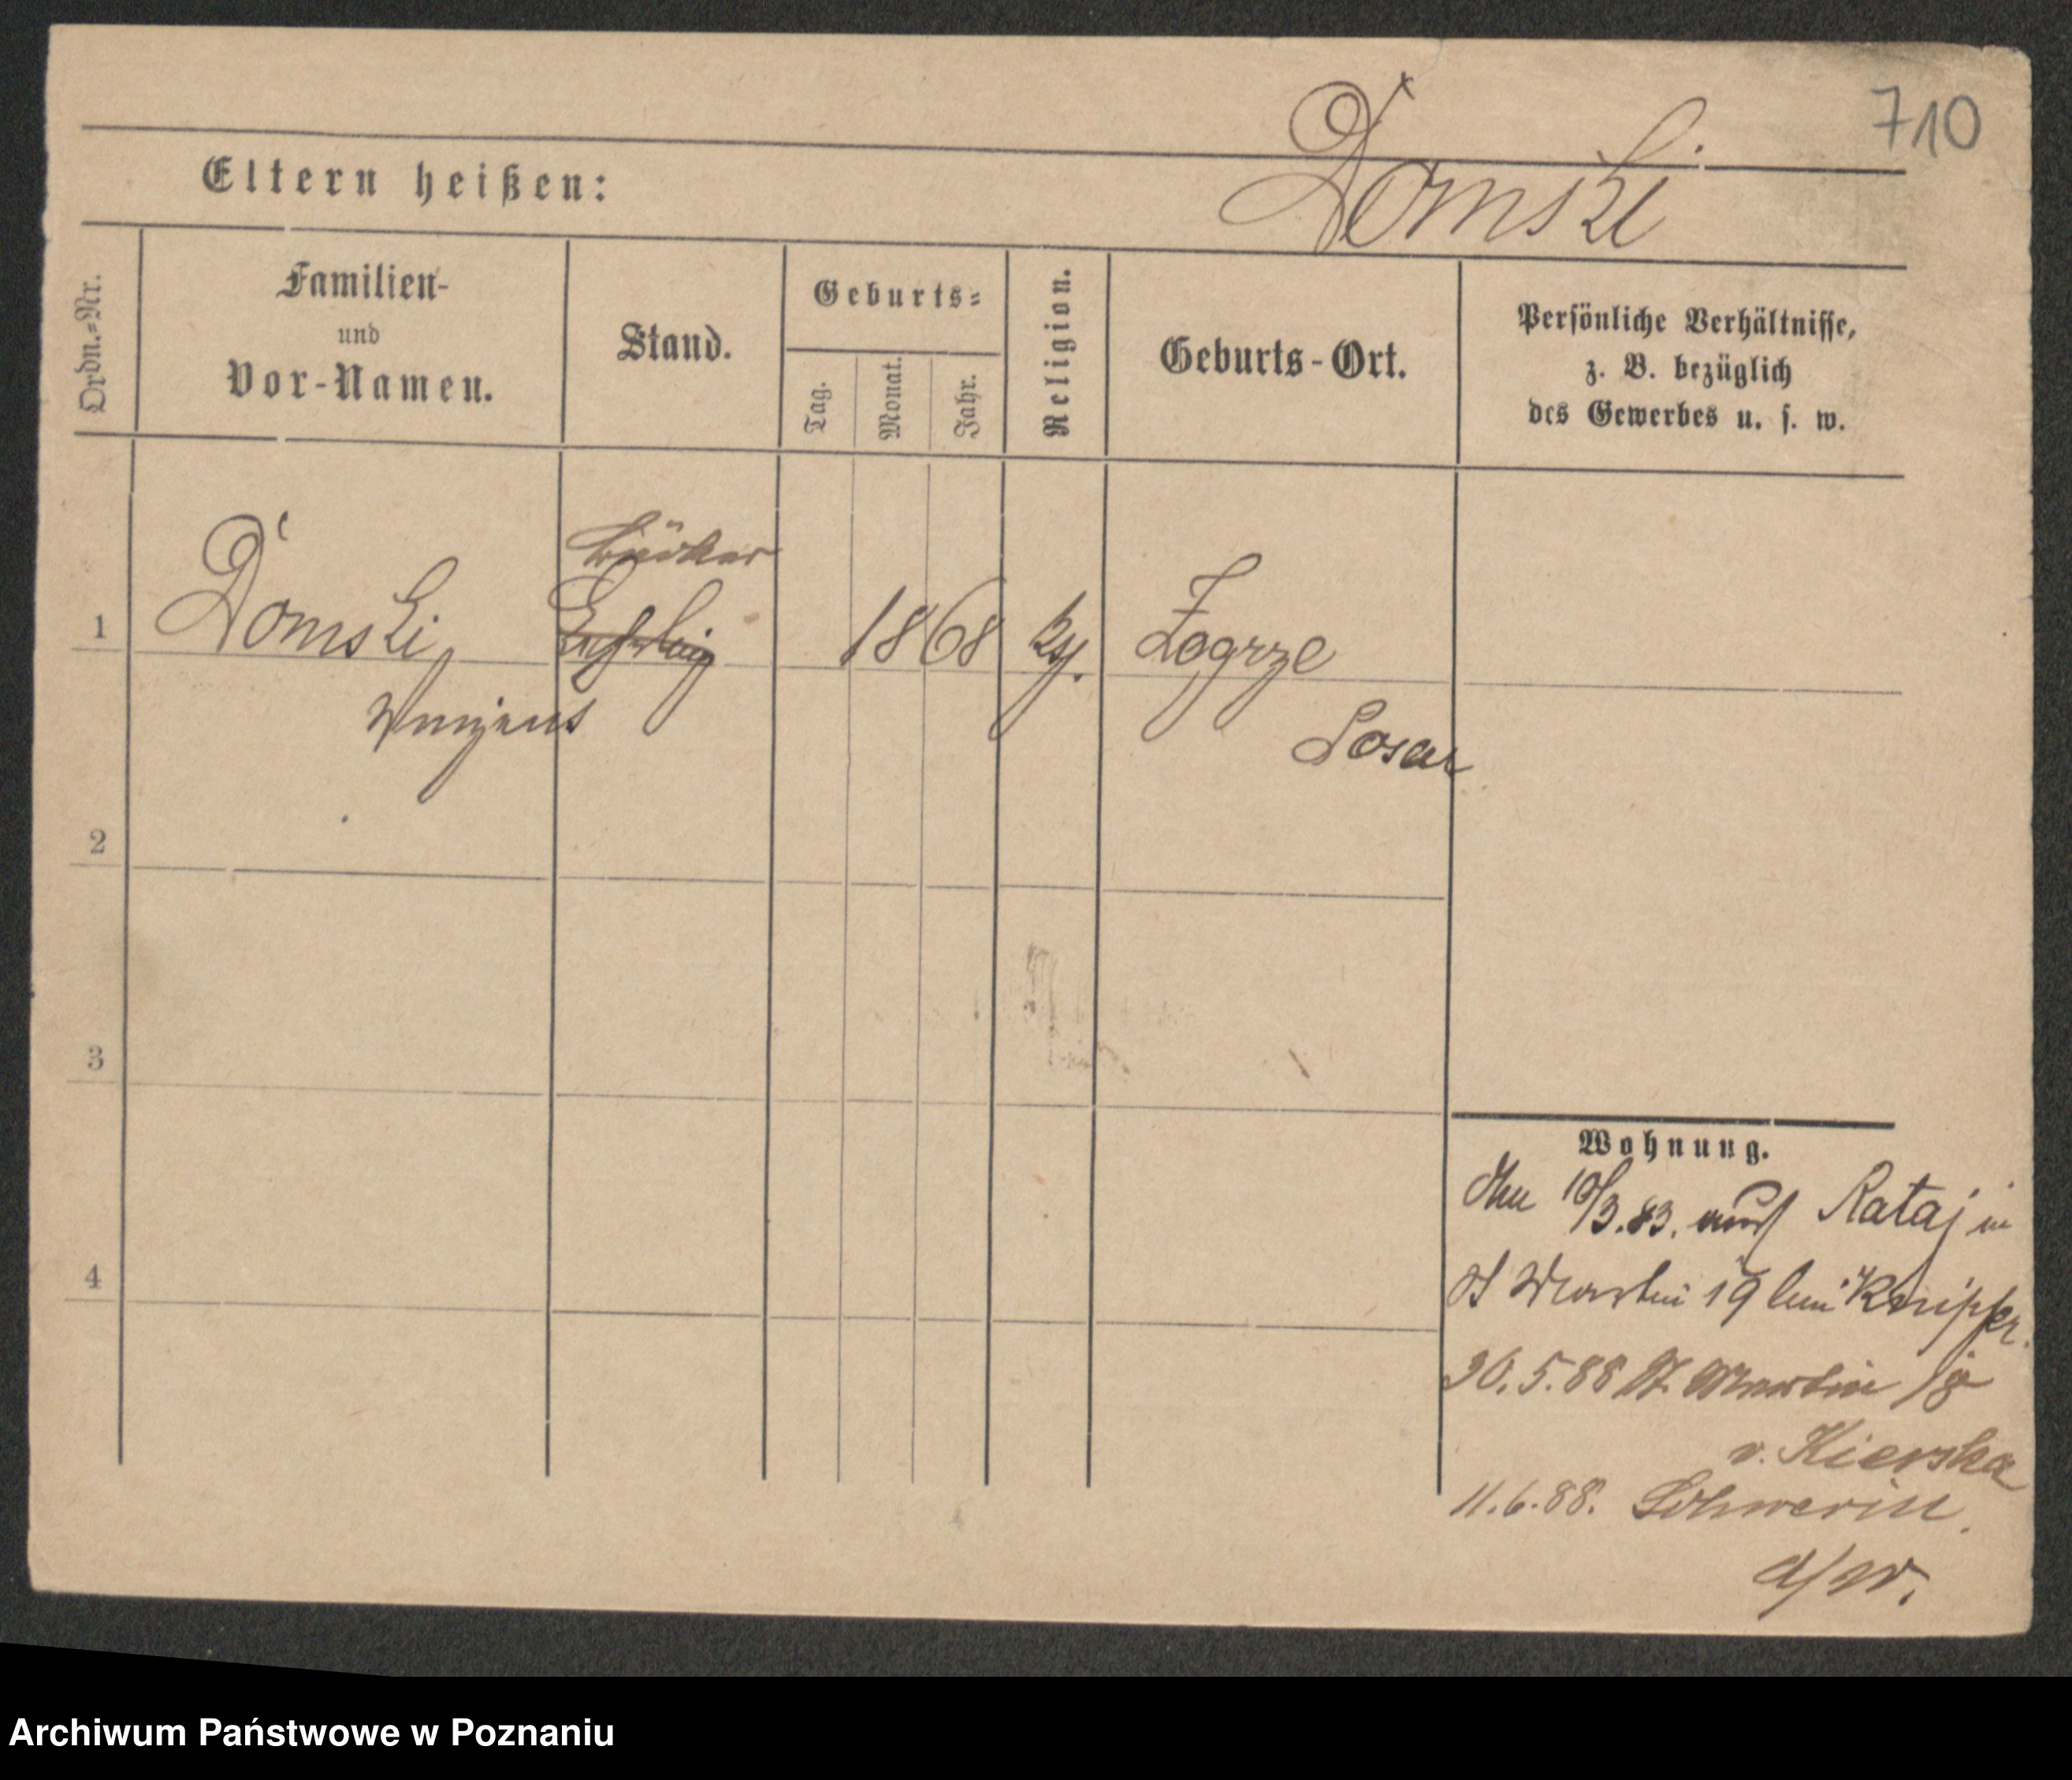 710
Domski
Eltern heißen:
Ordn.-Nr.
Familien-
und
Vor-Namen.
Stand.
Geburts-
Tag.
Monat.
Jahr.
Religion.
Geburts-Ort.
Persönliche Verhältnisse,
z. B. bezüglich
des Gewerbes u. s. w.
Bäcker
1 Domski Lehrling 1868 Zogrze
Posen
2
3
4
Wohnung.
10/3.83. aus Rataj in
St Martin 19 bei
30.5.88 St. Martin 18
v. Kierska
11.6.88. Schwerin.
a/W.
Archiwum Państwowe w Poznaniu